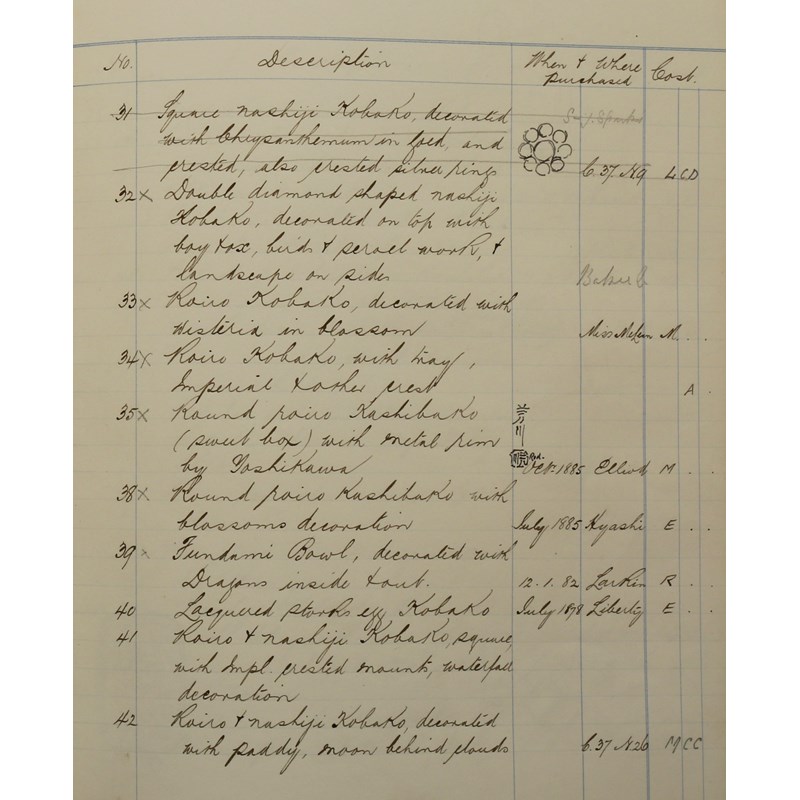 No. Description When & Where Purchased Cost.
31 Square nashiji Kobako, decorated
with Chrysanthemum in gold, and
crested, also crested silver rings C.37. N9 L C D
32 x Double diamond shaped nashiji
Kobako, decorated on top with
boy & ox, birds & scroll work, &
landscape on sides
33 x Roiro Kobako, decorated with
wisteria in blossom Miss M.
34 x Roiro Kobako, with tray,
Imperial & other crest A
35 x Round roiro Kashibako
(sweet box) with metal rim
by Yoshikawa Oct. 1885 M
38 x Round roiro Kashibako with
blossoms decoration July 1885 Hyashi E
39 x Fundami Bowl, decorated with
Dragons inside & out. 12.1.82 Larkin R
40 Lacquered storks egg Kobako July 1898 Liberty E
41 Roiro & nashiji Kobako, square,
with Impl. crested mounts, waterfall
decoration
42 Roiro & nashiji Kobako, decorated
with paddy, moon behind clouds C.37 N26 M C C